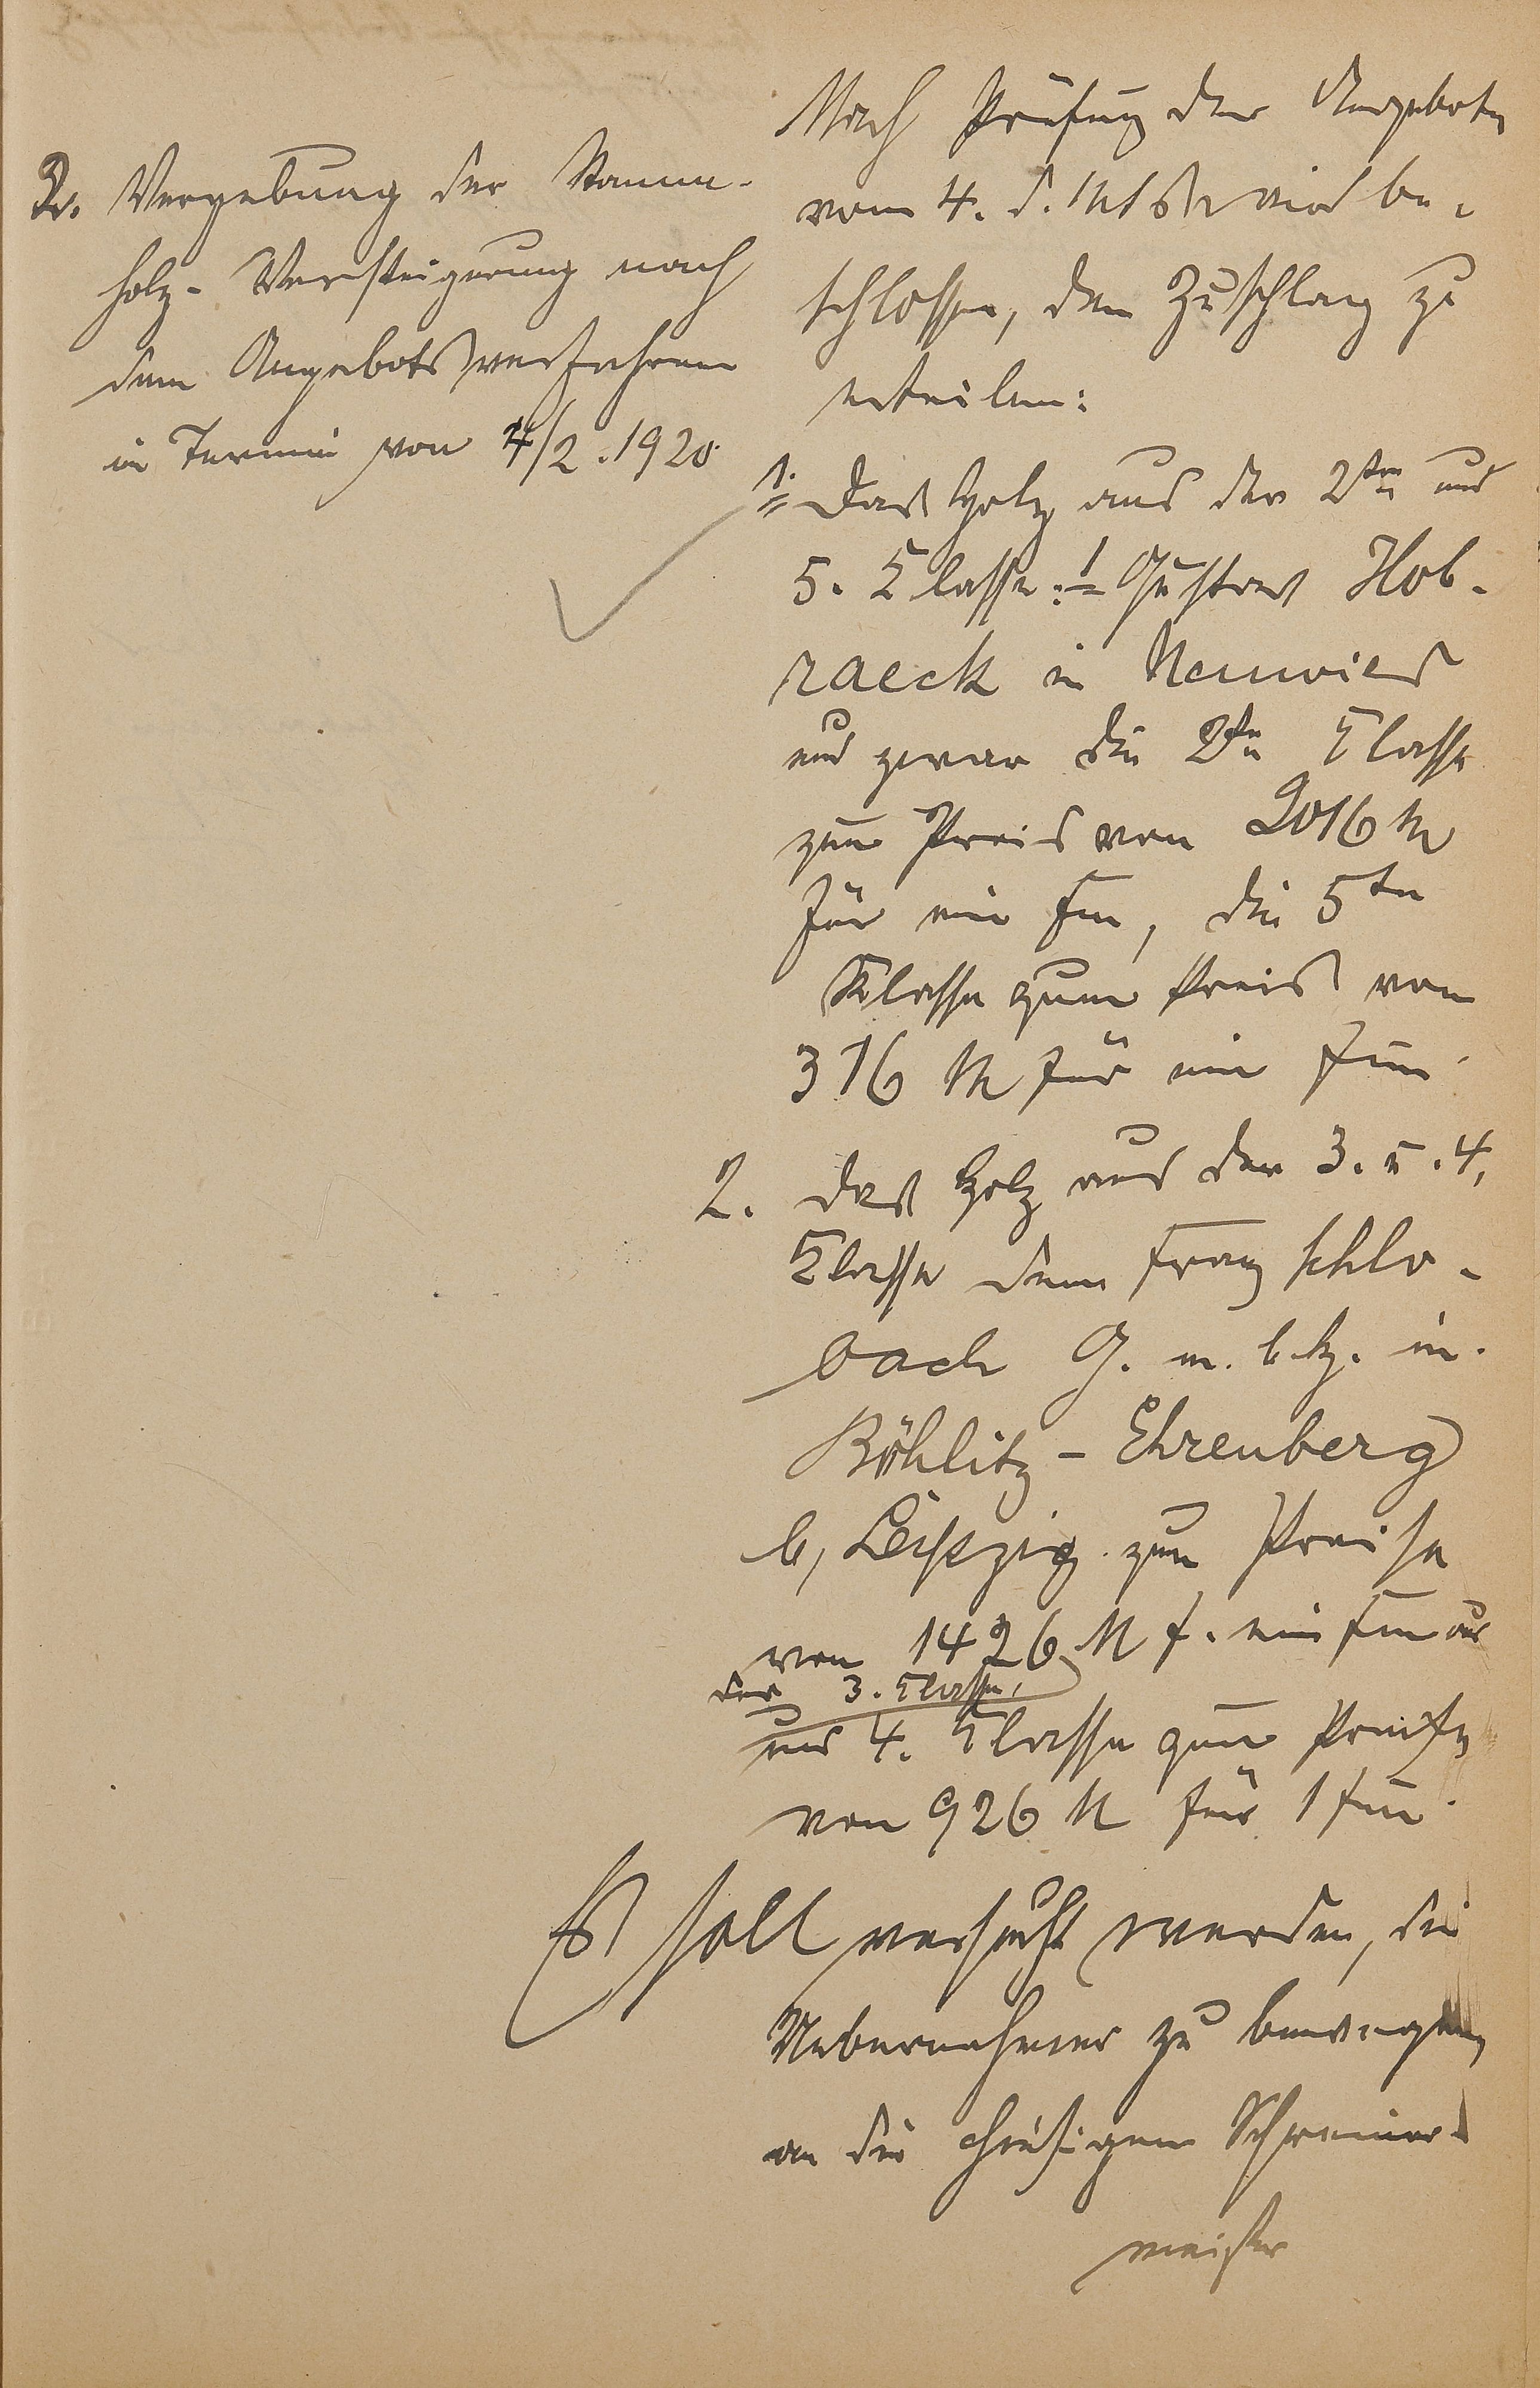 2. Vergebung der Stamm-
holz-Versteigerung nach
dem Angebotsverfahren
in Termin von 4/2.1920
Nach Prüfung der Angebote
vom 4. d. Mts. wird be-
schlossen, den Zuschlag zu
erteilen:
1. Das Holz aus der 2ten und
5. Klasse: Gustav Hob-
raeck in Neuwied
und zwar die 2te Klasse
zum Preis von 2016 M
für ein fm, die 5te
Klasse zum Preis von
316 M für ein fm.
2. das Holz aus der 3. u. 4.
Klasse dem Franz Schlo-
bach G.m.b.H. in
Böhlitz-Ehrenberg
b, Leipzig zum Preise
von 1426 M f. ein fm aus
der 3. Klasse,
und 4. Klasse zum Preise
von 926 M für 1 fm.
Es soll versucht werden, die
Uebernehmer zu bewegen,
an die hiesigen Schreiner-
meister